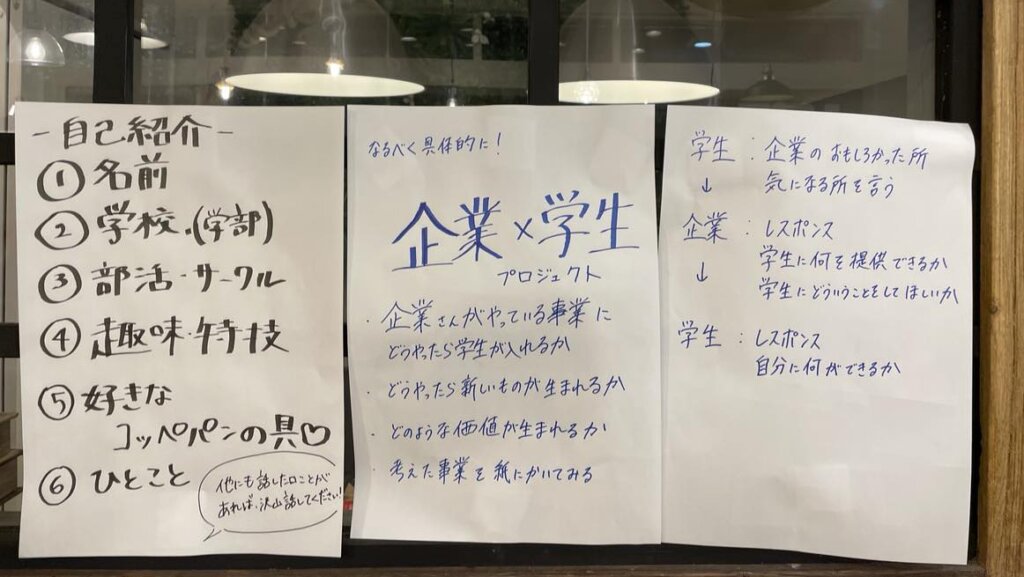 -自己紹介-
① 名前
② 学校.(学部)
③ 部活・サークル
④ 趣味・特技
⑤ 好きな
コッペパンの具♡
⑥ ひとこと
他にも話したいことが
あれば、沢山話してください!
なるべく具体的に!
企業×学生
プロジェクト
・企業さんがやっている事業に
どうやったら学生が入れるか
・どうやったら新しいものが生まれるか
・どのような価値が生まれるか
・考えた事業を紙にかいてみる
学生:企業のおもしろかった所
↓ 気になる所を言う
企業:レスポンス
↓ 学生に何を提供できるか
学生にどういうことをしてほしいか
学生:レスポンス
自分に何ができるか